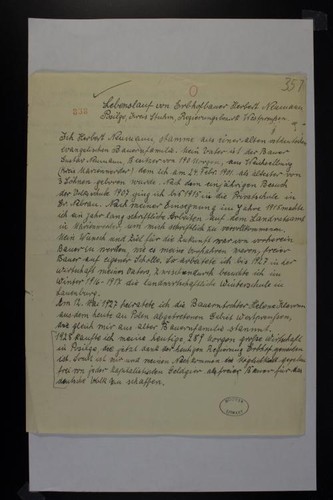 351
Lebenslauf von Erbhofbauer Herbert Neumann
Posilge, Kreis Stuhm, Regierungsbezirk Westpreußen
Ich Herbert Neumann, stamme aus einer alten
evangelischen Bauernfamilie. Mein Vater ist der Bauer
Gustav Neumann, Besitzer von 190 Morgen, aus
(Kreis Marienwerder) dem ich am 24. Febr. 1901 als ältester von
3 Söhnen geboren wurde. Nach dem einjährigen Besuch
der Volksschule 1907 ging ich bis 1915 in die Privatschule in
Gr. Nebrau. Nach meiner Einsegnung im Jahre
ich ein Jahr lang schriftliche Arbeiten auf dem Landratsamt
in Marienwerder, um mich schriftlich zu vervollkommnen.
Mein Wunsch und Ziel für die Zukunft war von vornherein
Bauer zu werden, wie es meine Vorfahren waren, freier
Bauer auf eigener Scholle. So arbeitete ich bis 1927 in der
Wirtschaft meines Vaters, zwischendurch besuchte ich im
Winter die landwirtschaftliche Winterschule in
Am 12. Mai 1927 heiratete ich die Bauerntochter
aus dem heute an Polen abgetretenen Gebiet Westpreußens,
die gleich mir aus alter Bauernfamilie stammt.
1928 kaufte ich meine heutige 289 Morgen große Wirtschaft
in Posilge, die jetzt dank der heutigen Regierung Erbhof geworden
ist. Somit ist mir und meinen Nachkommen die Möglichkeit gegeben
frei von jeder kapitalistischen als freier Bauer für das
deutsche Volk zu schaffen.